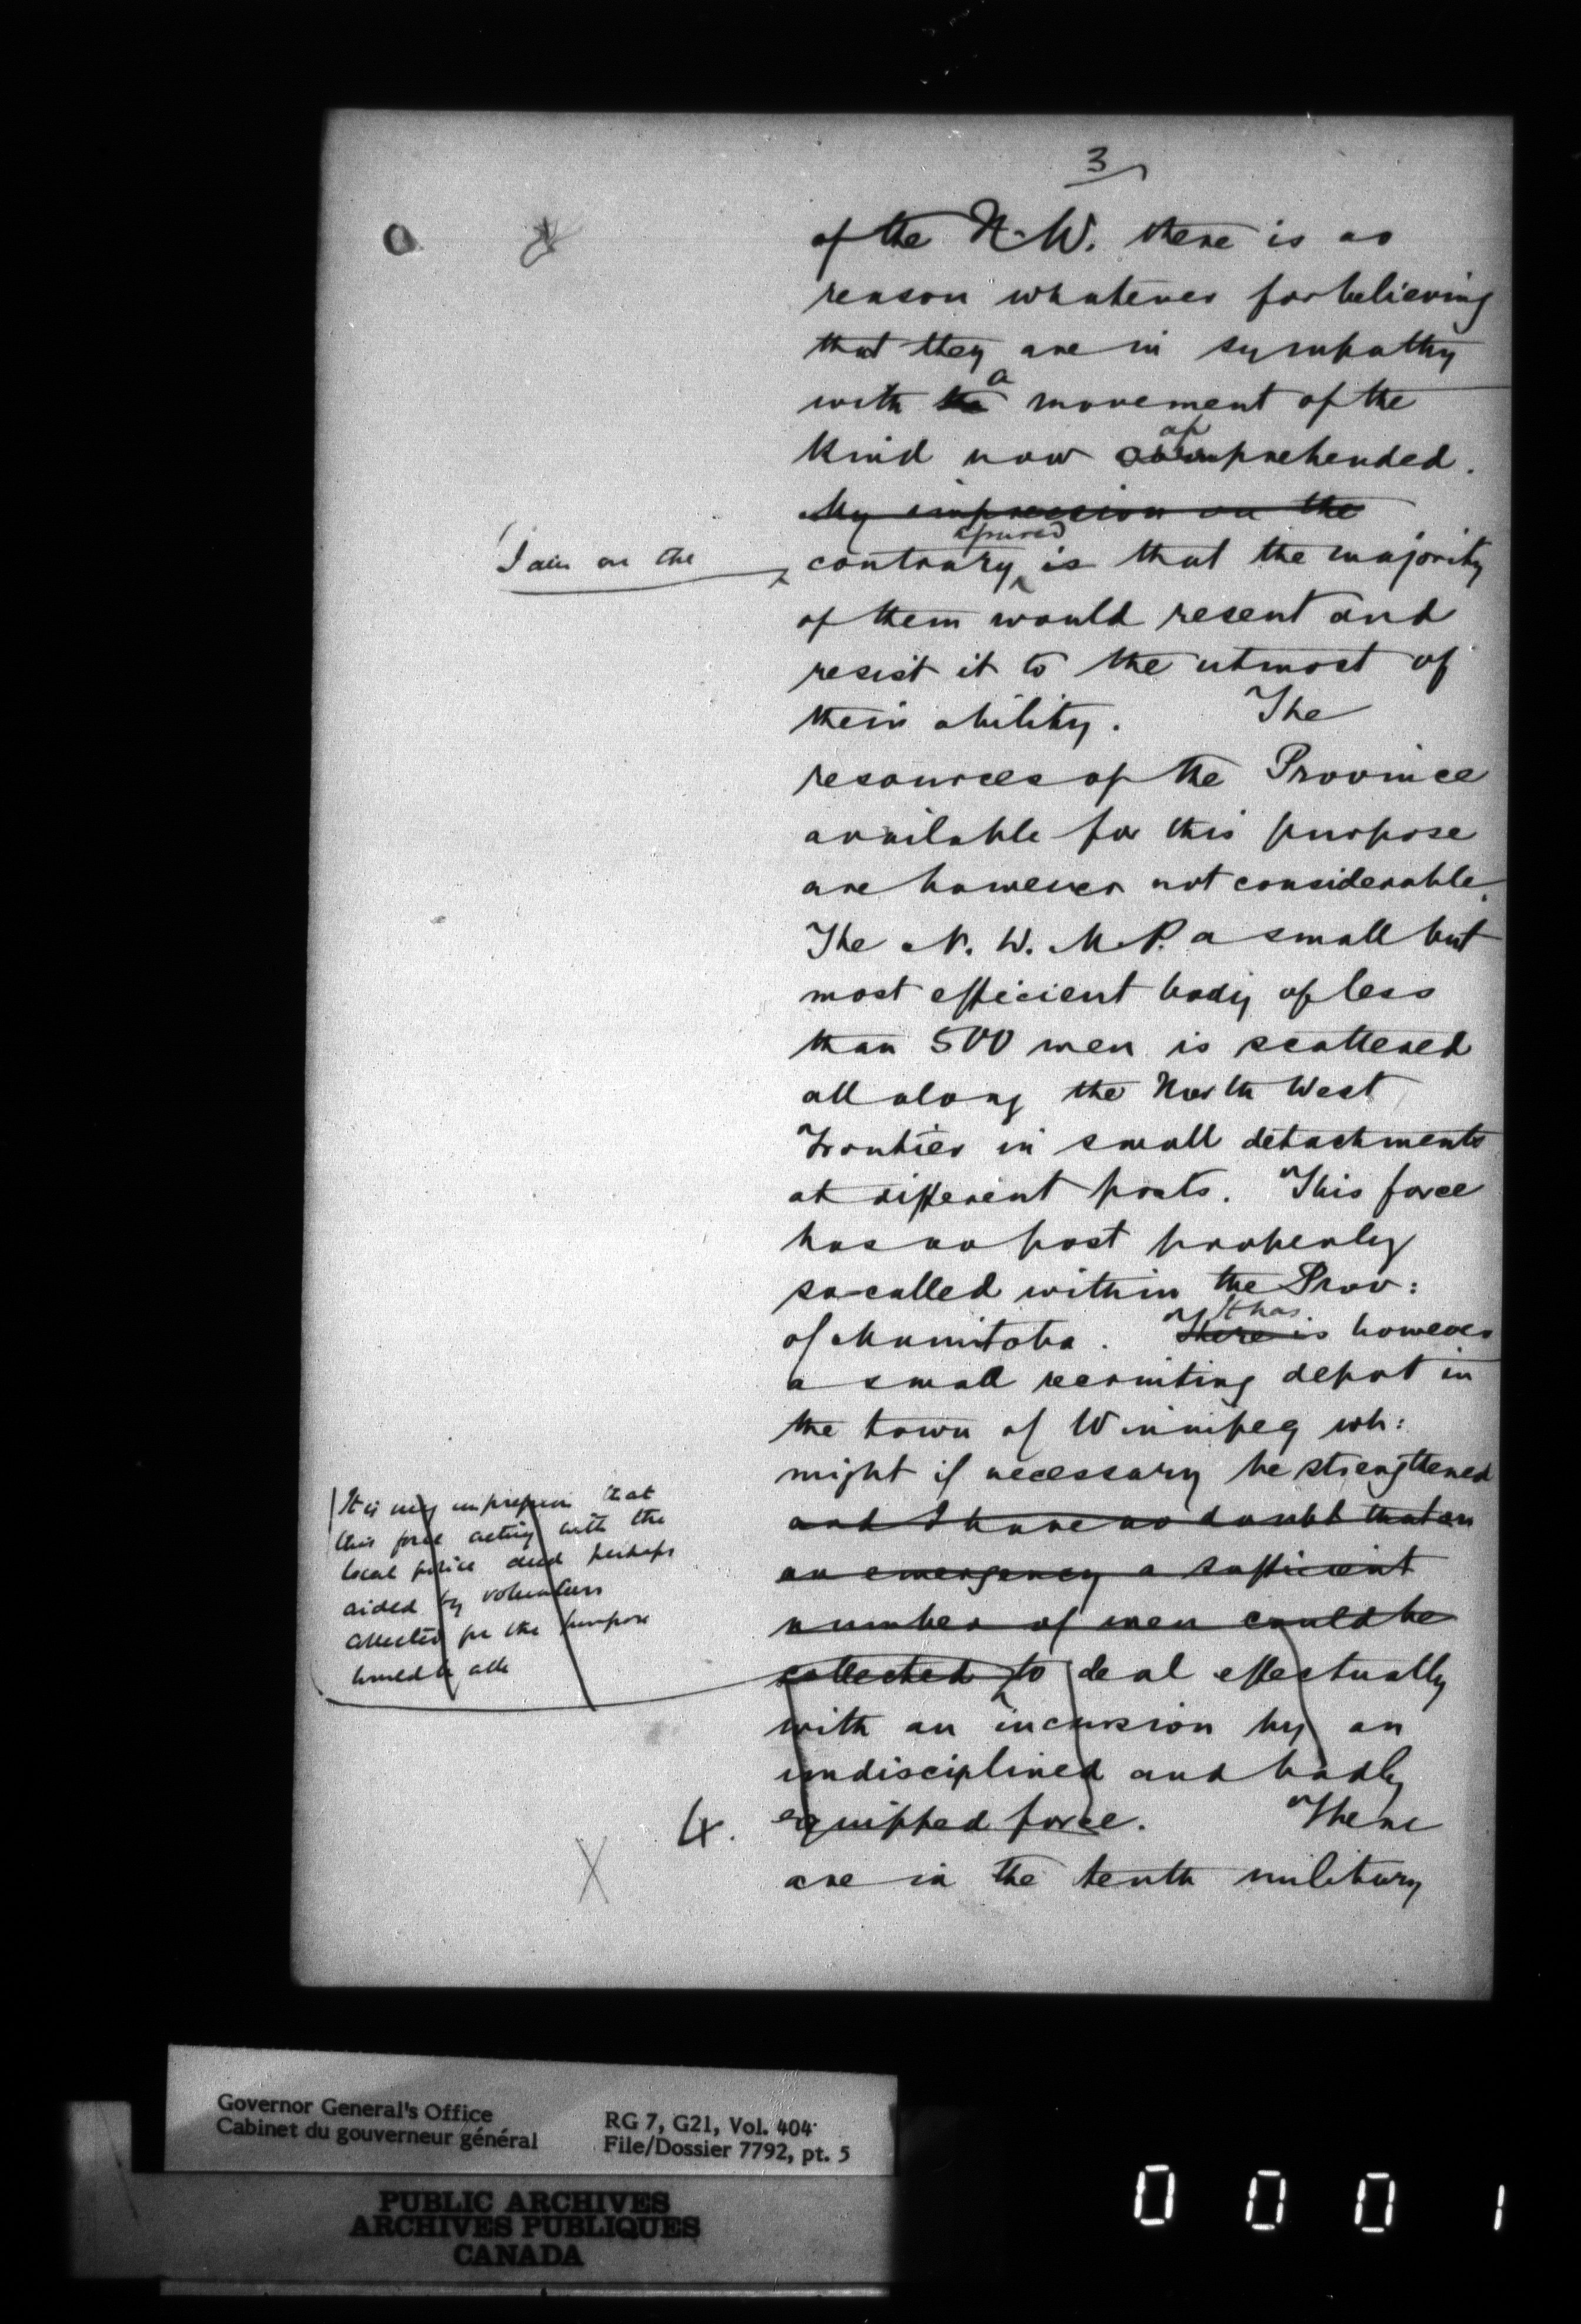 3
of the N.W. there is no
reason whatever for believing
that they are in sympathy
with the a movement of the
kind now apprehended.
My impression on the
I am on the
contrary assured is that the majority
of them would resent and
resist it to the utmost of
their ability. The
resources of the Province
available for this purpose
are however not considerable.
The N. W. M. P. a small but
most efficient body of less
than 500 men is scattered
all along the North West
Frontier in small detachments
at different posts. This force
has no post properly
so-called within the Prov:
of Manitoba. There is It has however
a small recruiting depot in
the town of Winnipeg wh:
might if necessary be strengthened
and I have no doubt that on
an emergency a sufficient
number of men could be
collected to deal effectually
with an incursion by an
undisciplined and badly
equipped force. There
are in the tenth military
It is my impression that
this force acting with the
local police and perhaps
aided by volunteers
collected for the purpose
would be able
4.
X
Governor General's Office
Cabinet du gouverneur général
RG 7, G21, Vol. 404
File/Dossier 7792, pt. 5
PUBLIC ARCHIVES
ARCHIVES PUBLIQUES
CANADA
0001